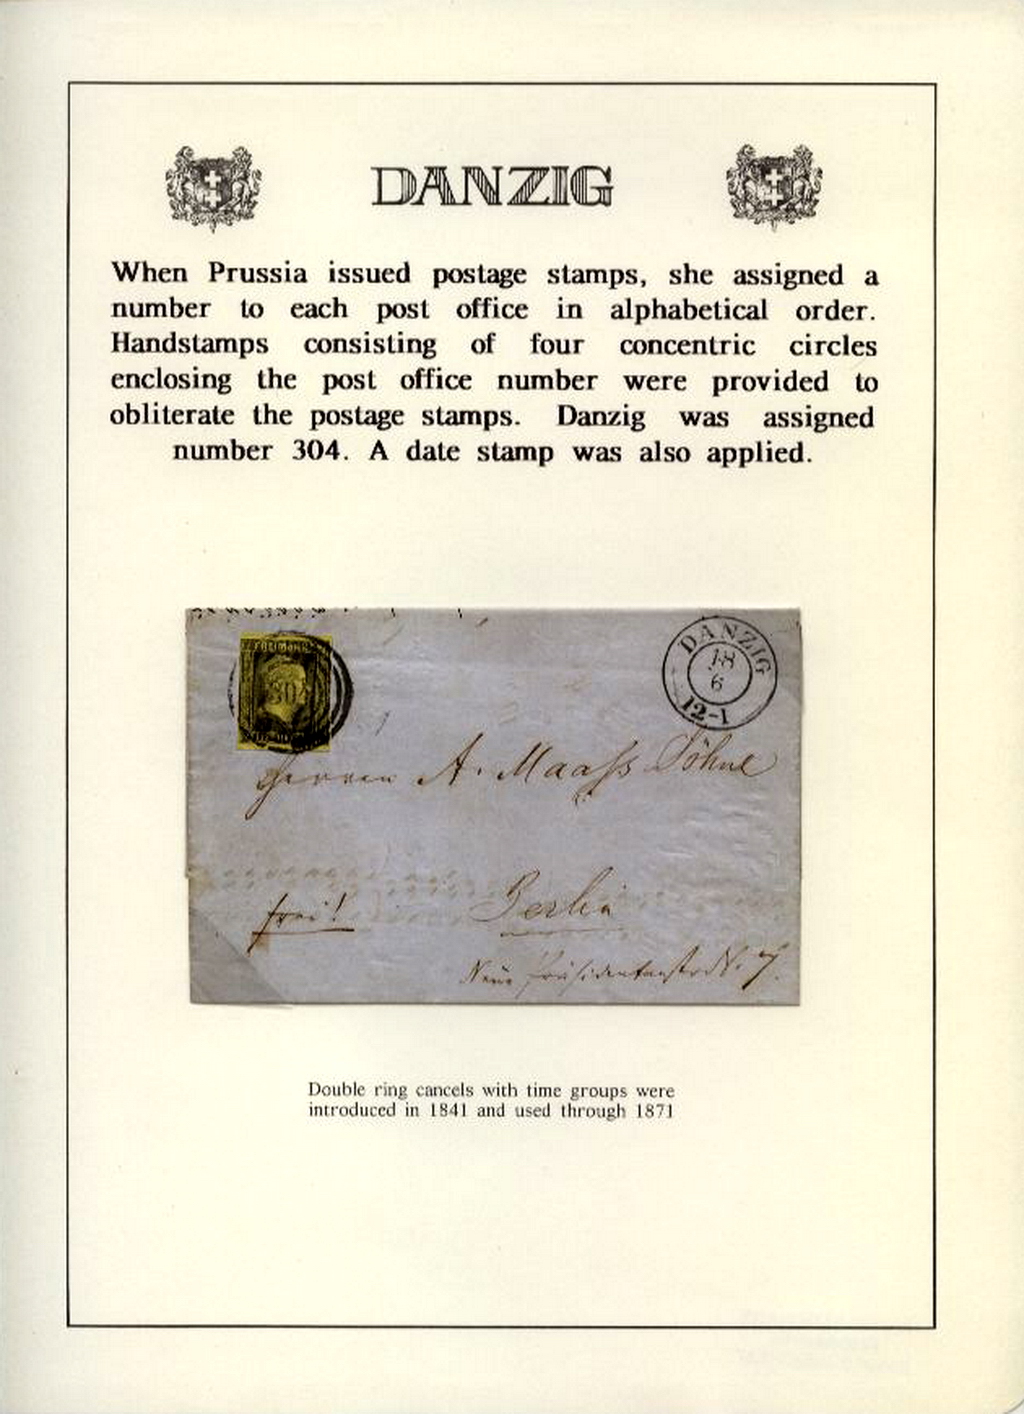 DANZIG
When Prussia issued postage stamps, she assigned a
number to each post office in alphabetical order.
Handstamps consisting of four concentric circles
enclosing the post office number were provided to
obliterate the postage stamps. Danzig was assigned
number 304. A date stamp was also applied.
304
DANZIG
18
6
12-1
Herren A. Maaſs Söhne
frei!
Berlin
Neue 7.
Double ring cancels with time groups were
introduced in 1841 and used through 1871